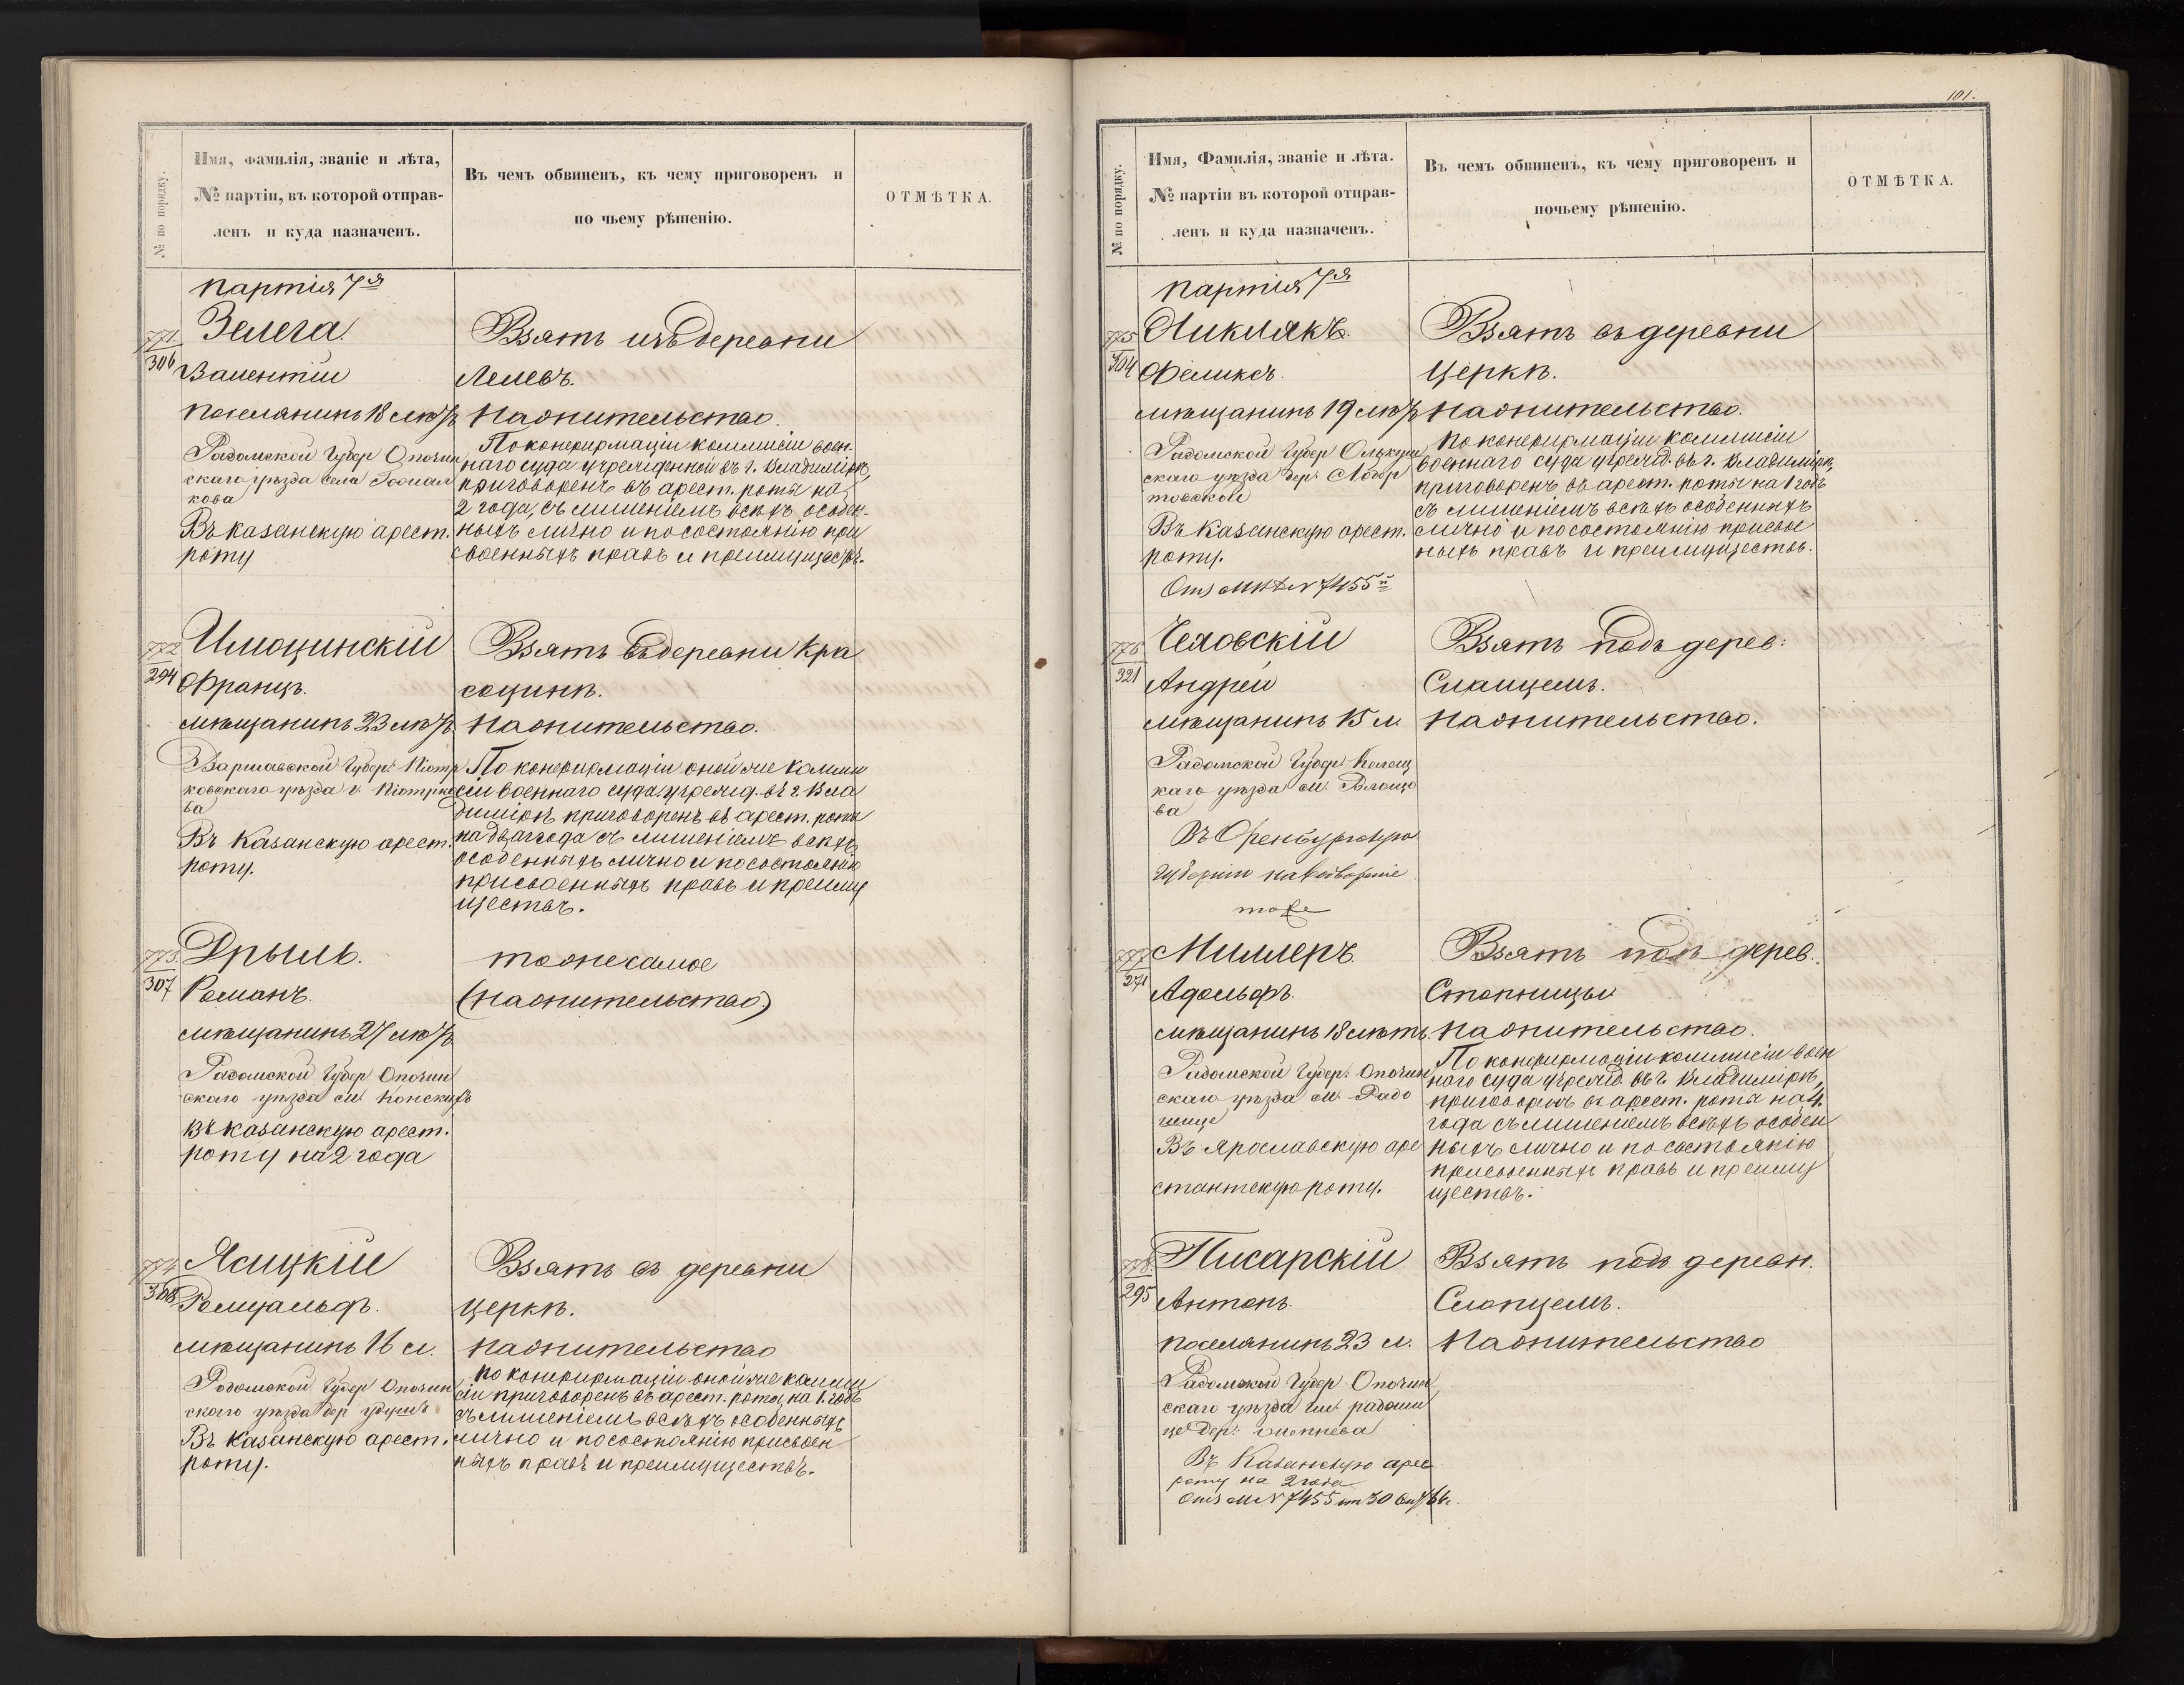 № по порядку.
Имя, Фамилія, званіе и лѣта,
№ партіи, въ которой отправ-
ленъ и куда назначенъ.
Въ чемъ обвиненъ, къ чему приговоренъ и
по чьему рѣшенію.
ОТМѢТКА.
партія 7я
771
306
Зелега.
Валентій
поселянинъ 18 лѣтъ
Радомской Губер Опочин
скаго уѣзда села
кова
Въ Казанскую арест.
роту
Взятъ изъ деревни
Лелевъ.
Жонжительство.
По конфирмаціи коммисіи воен-
наго суда учрежденной въ г. Владимірѣ,
приговоренъ въ арест. роты на
2 года, съ лишеніемъ всѣхъ особен-
ныхъ лично и по состоянію при
своенныхъ правъ и преимуществъ.
772
294
Францъ.
мѣщанинъ 23 лѣтъ
Варшавской Губер. Піотр
ковскаго уѣзда г. Піотрко
ва
Въ Казанскую арест.
роту.
Взятъ въ деревни Кра
социнѣ.
По конфирмаціи оной же коммис
сіи военнаго суда учрежд. въ г. Вла
димірѣ приговоренъ въ арест. роты
на два года съ лишеніемъ всѣхъ
особенныхъ лично и по состоянію
присвоенныхъ правъ и преиму
ществъ.
773.
307
Дрыль.
Романъ.
мѣщанинъ 27 лѣтъ
Радомской Губер Опочин
скаго уѣзда м. Конскихъ
въ Казанскую арест.
роту на 2 года
тоже самое
774
Ясицкій
Ромуальдъ.
мѣщанинъ 16 л.
Радомской Губер Опочин
скаго уѣзда дер
Въ Казанскую арест.
роту.
Взятъ въ деревни
Церкѣ.
По конфирмаціи оной же коммис
сіи приговоренъ въ арест. роты на 1 годъ
съ лишеніемъ всѣхъ особенныхъ
лично и по состоянію присвоен
ныхъ правъ и преимуществъ.
101.
№ по порядку.
Имя, Фамилія, званіе и лѣта.
№ партіи въ которой отправ-
ленъ и куда назначенъ.
Въ чемъ обвиненъ, къ чему приговоренъ и
почьему рѣшенію.
ОТМѢТКА.
партія 7я
775
304
Феликсъ.
мѣщанинъ 19 лѣтъ
Радомской Губер Олькуш
скаго уѣзда дер.
Въ Казанскую арест.
роту.
№ 7455
Взятъ въ деревни
Церкѣ.
По конфирмаціи коммисіи
военнаго суда учрежд. въ г. Владимірѣ,
приговоренъ въ арест. роты на 1 годъ
съ лишеніемъ всѣхъ особенныхъ
лично и по состоянію присвоен
ныхъ правъ и преимуществъ.
776
321
Андрей
мѣщанинъ 15 л.
Радомской Губер Келец
каго уѣзда м.
ва
Въ Оренбургскую
Губернію на водвореніе
тоже
Взятъ подъ дерев:
777
271
Миллеръ.
Адольфъ.
мѣщанинъ 18 лѣтъ.
Радомской Губер. Опочин
скаго уѣзда м. Радо
шице
Въ Ярославскую аре
стантскую роту.
Взятъ подъ дерев.
Стопницы
По конфирмаціи коммисіи воен
наго суда учрежд. въ г. Владимірѣ,
приговоренъ въ арест. роты на 4.
года съ лишеніемъ всѣхъ особен
ныхъ лично и по состоянію
присвоенныхъ правъ и преиму
ществъ.
778.
295
Писарскій
Антонъ.
поселянинъ 23 л.
Радомской Губер Опочин
скаго уѣзда гм. радоши
це дер.
Въ Казанскую арес
роту на 2 года
№ 7455 от 30
Взятъ подъ деревн.